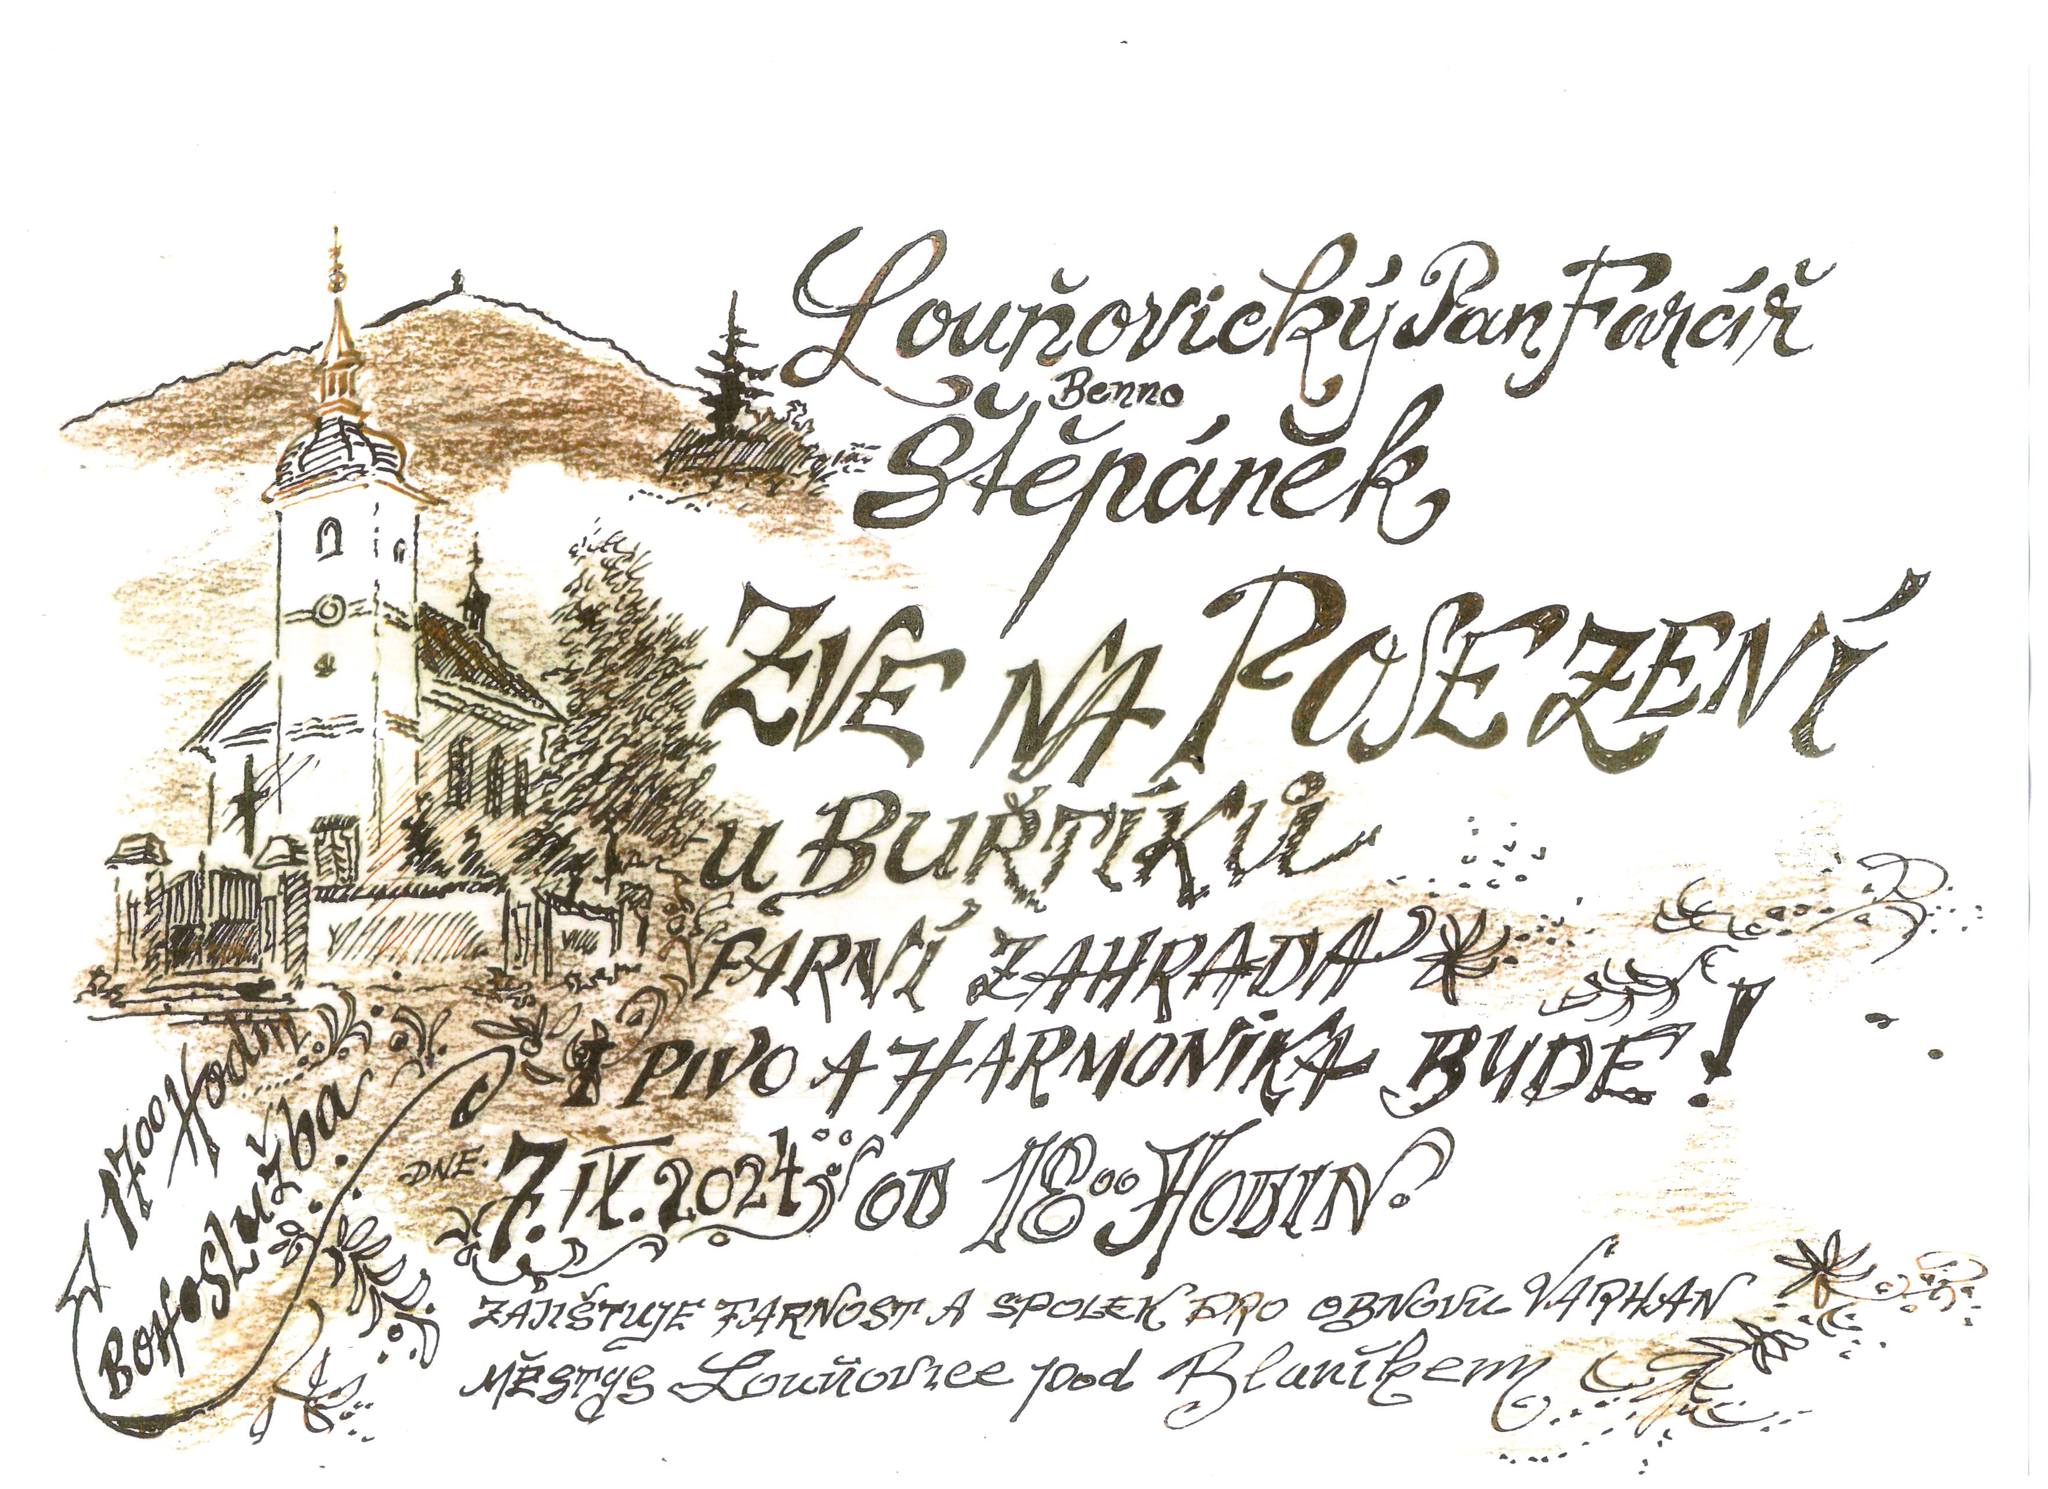 Louňovický Pan Farář
Benno
Štěpánek
ZVE NA POSEZENÍ
u BUŘTÍKŮ
FARNÍ ZAHRADA
I PIVO A HARMONIKA BUDE!
DNE 7. IX. 2024 OD 18⁰⁰ HODIN
ZAJIŠŤUJE FARNOST A SPOLEK PRO OBNOVU VARHAN
MĚSTYS Louňovice pod Blaníkem
V 17⁰⁰ Hodin
BOHOSLUŽba